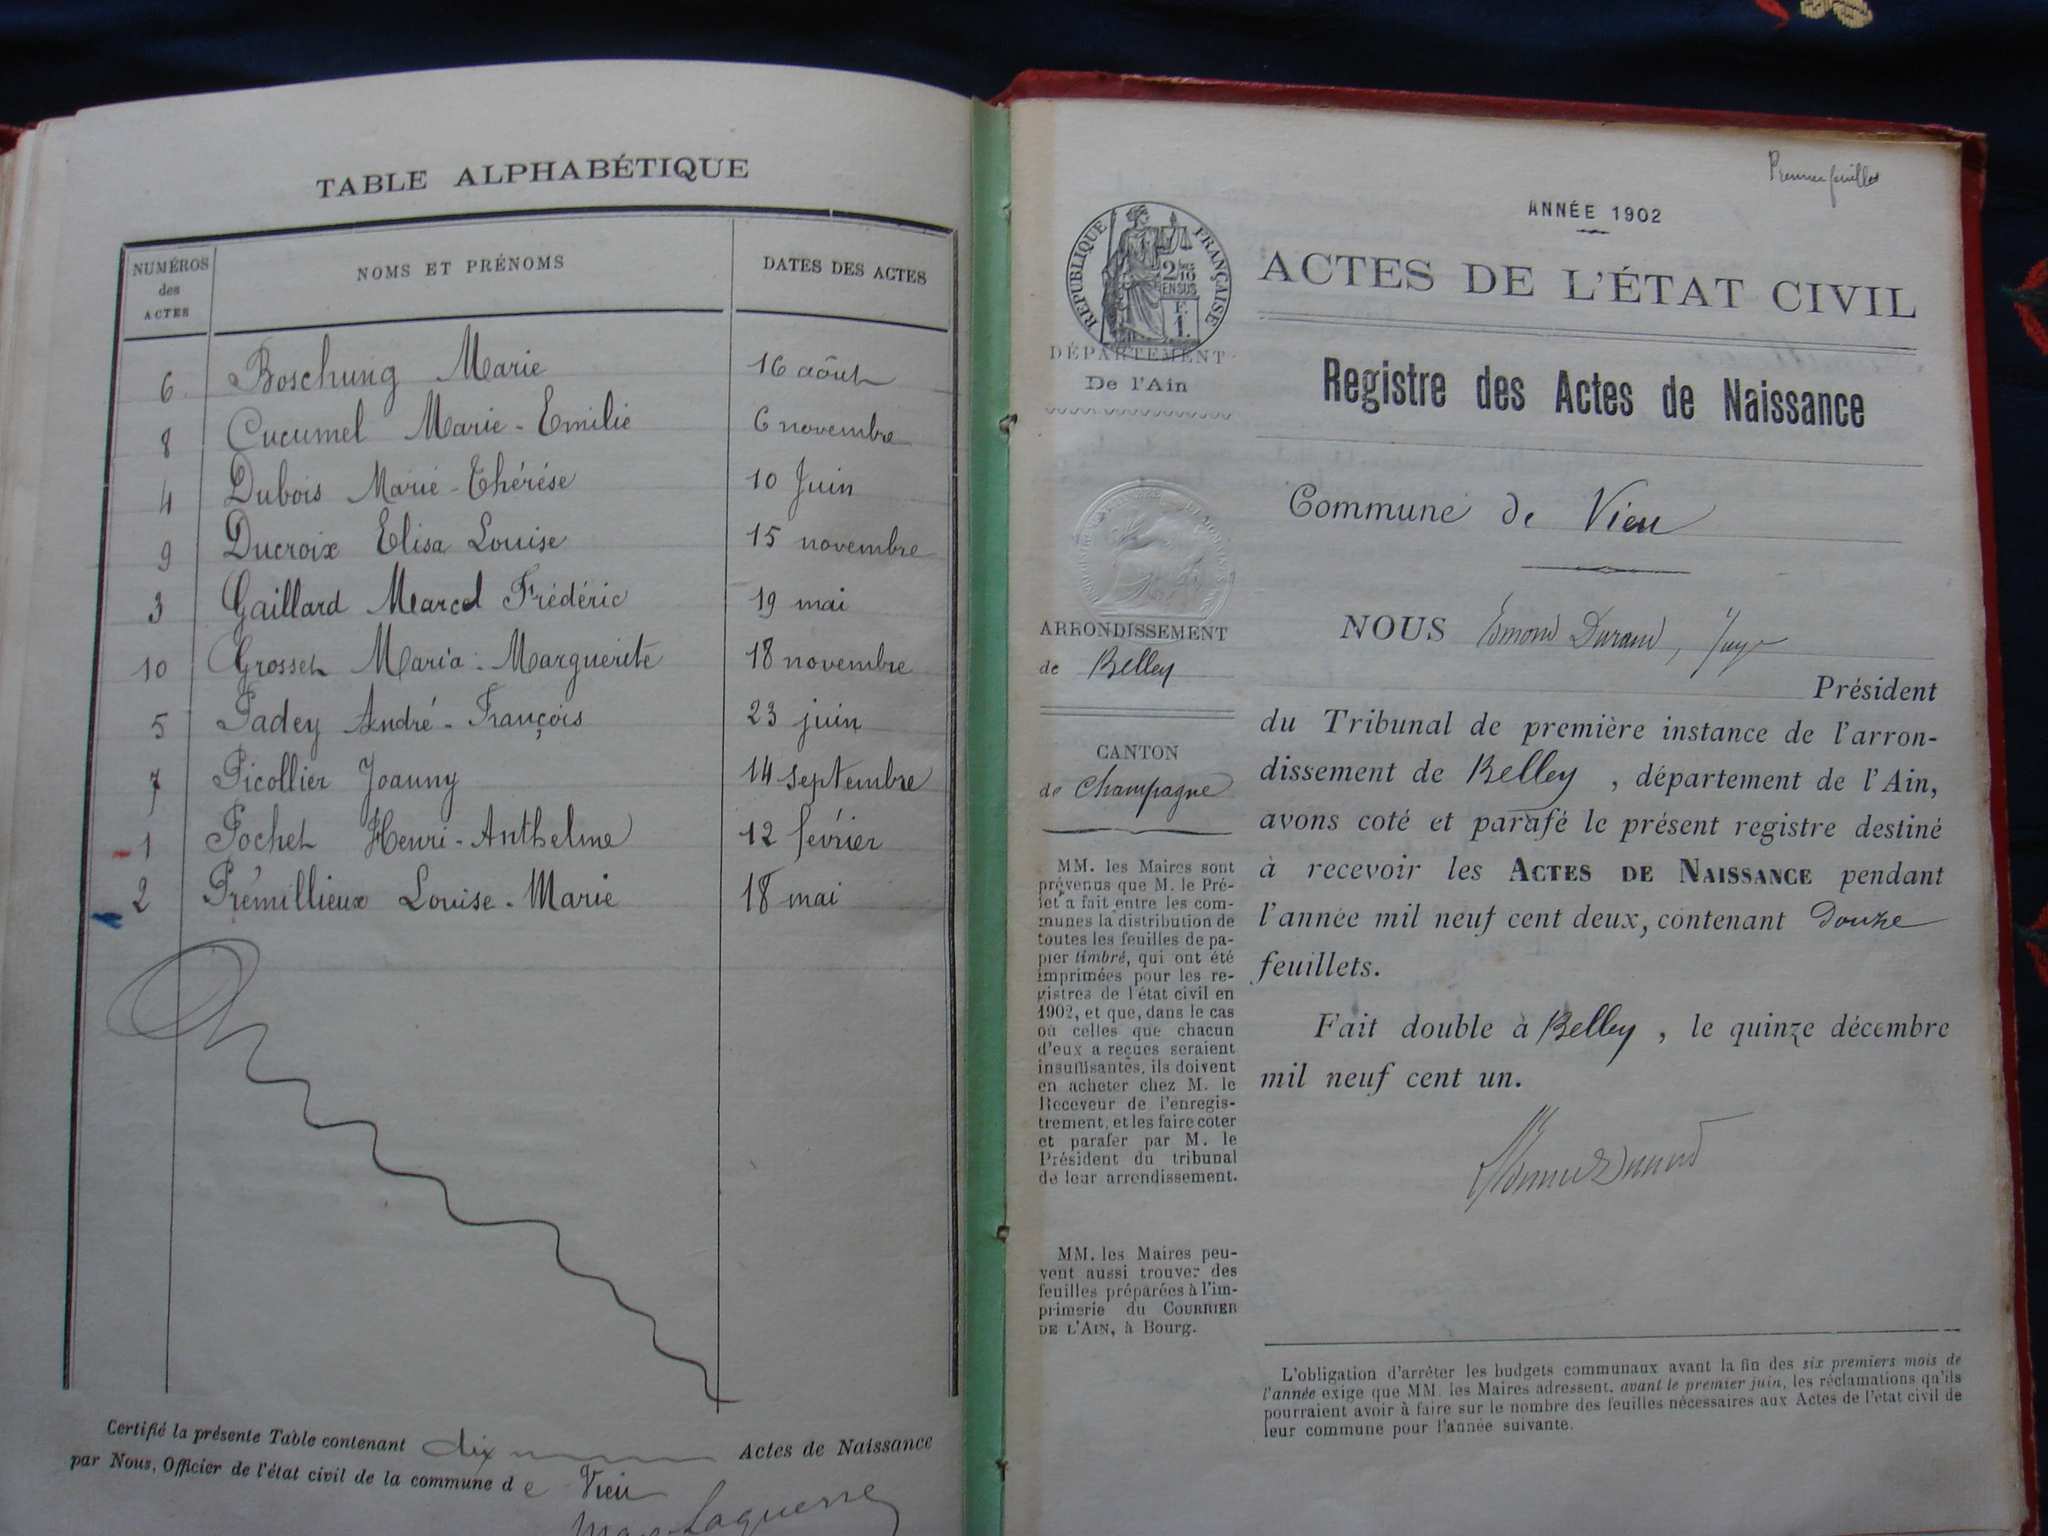 TABLE ALPHABÉTIQUE
NUMÉROS des ACTES NOMS ET PRÉNOMS DATES DES ACTES
6 Boschung Marie 16 août
8 Cucumel Marie-Emilie 6 novembre
4 Dubois Marie-Thérése 10 Juin
9 Ducroix Elisa Louise 15 novembre
3 Gaillard Marcel Frédéric 19 mai
10 Grosset Maria-Marguerite 18 novembre
5 Padey André-François 23 juin
7 Picollier Joanny 14 septembre
1 Pochet Henri-Anthelme 12 février
2 Prémillieux Louise-Marie 18 mai
Certifié la présente Table contenant dix Actes de Naissance
par Nous, Officier de l'état civil de la commune de Vieu
Premier feuillet
ANNÉE 1902
RÉPUBLIQUE FRANÇAISE
2 10 EN SUS
F. 1.
ACTES DE L'ÉTAT CIVIL
DÉPARTEMENT
De l'Ain
Registre des Actes de Naissance
Commune de Vieu
ARRONDISSEMENT
de Belley
CANTON
de Champagne
MM. les Maires sont
prévenus que M. le Pré-
fet a fait entre les com-
munes la distribution de
toutes les feuilles de pa-
pier timbré, qui ont été
imprimées pour les re-
gistres de l'état civil en
1902, et que, dans le cas
où celles que chacun
d'eux a reçues seraient
insuffisantes, ils doivent
en acheter chez M. le
Receveur de l'enregis-
trement, et les faire coter
et parafer par M. le
Président du tribunal
de leur arrondissement.
MM. les Maires peu-
vent aussi trouver des
feuilles préparées à l'im-
primerie du COURRIER
DE L'AIN, à Bourg.
NOUS Edmond Durand, Juge
Président
du Tribunal de première instance de l'arron-
dissement de Belley, département de l'Ain,
avons coté et parafé le présent registre destiné
à recevoir les ACTES DE NAISSANCE pendant
l'année mil neuf cent deux, contenant douze
feuillets.
Fait double à Belley, le quinze décembre
mil neuf cent un.
L'obligation d'arrêter les budgets communaux avant la fin des six premiers mois de
l'année exige que MM. les Maires adressent, avant le premier juin, les réclamations qu'ils
pourraient avoir à faire sur le nombre des feuilles nécessaires aux Actes de l'état civil de
leur commune pour l'année suivante.